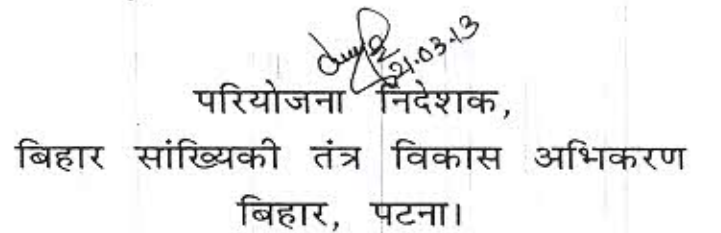 21.03.13
परियोजना निदेशक,
बिहार सांख्यिकी तंत्र विकास अभिकरण
बिहार, पटना।